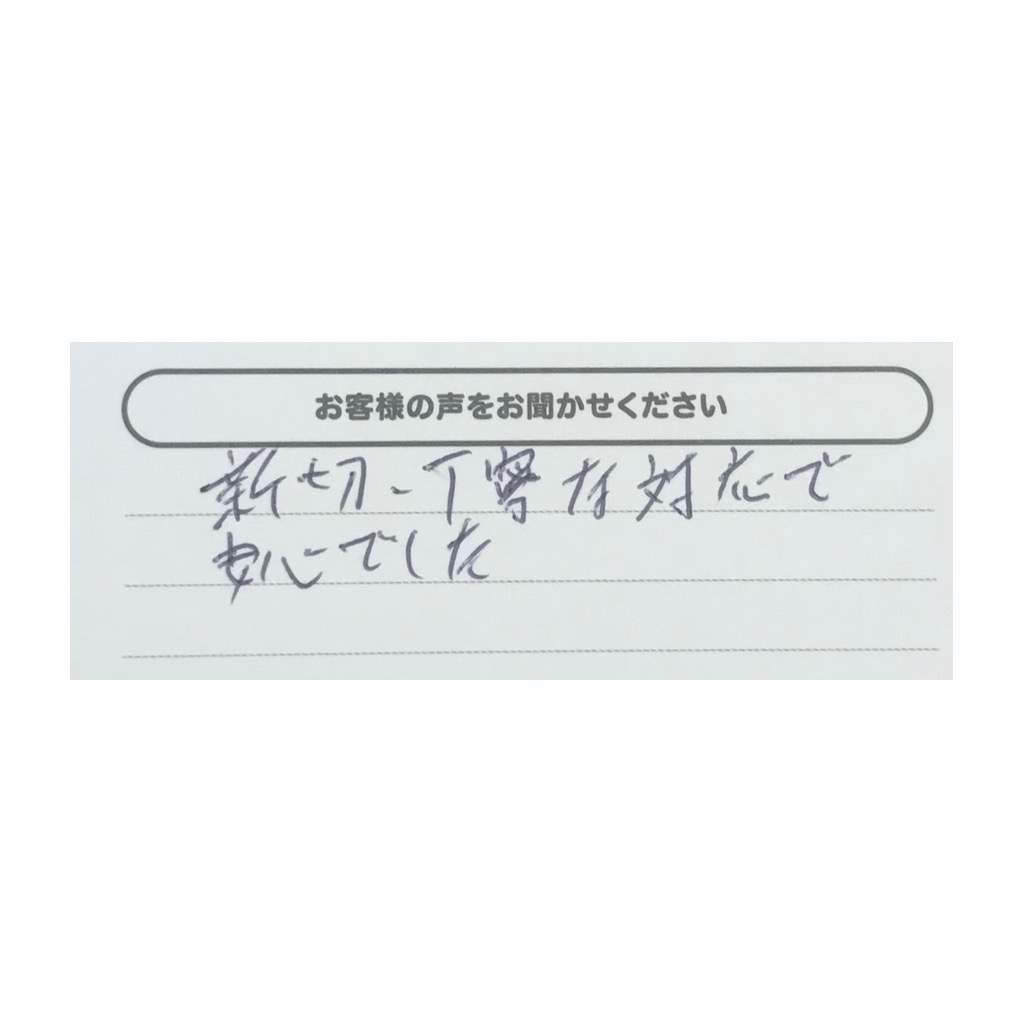 お客様の声をお聞かせください
新切、丁寧な対応で
安心でした